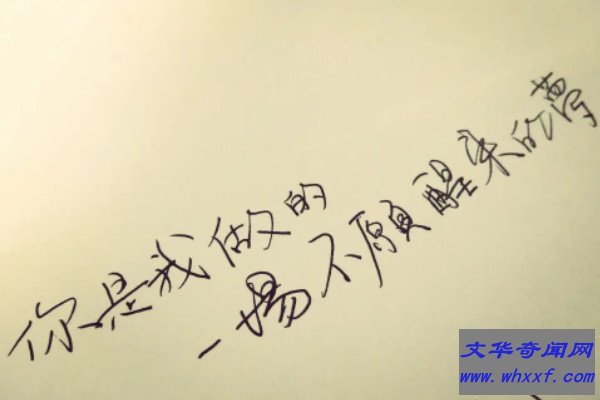 你是我做的
一場不願醒来的夢
文华奇闻网
www.whxxf.com